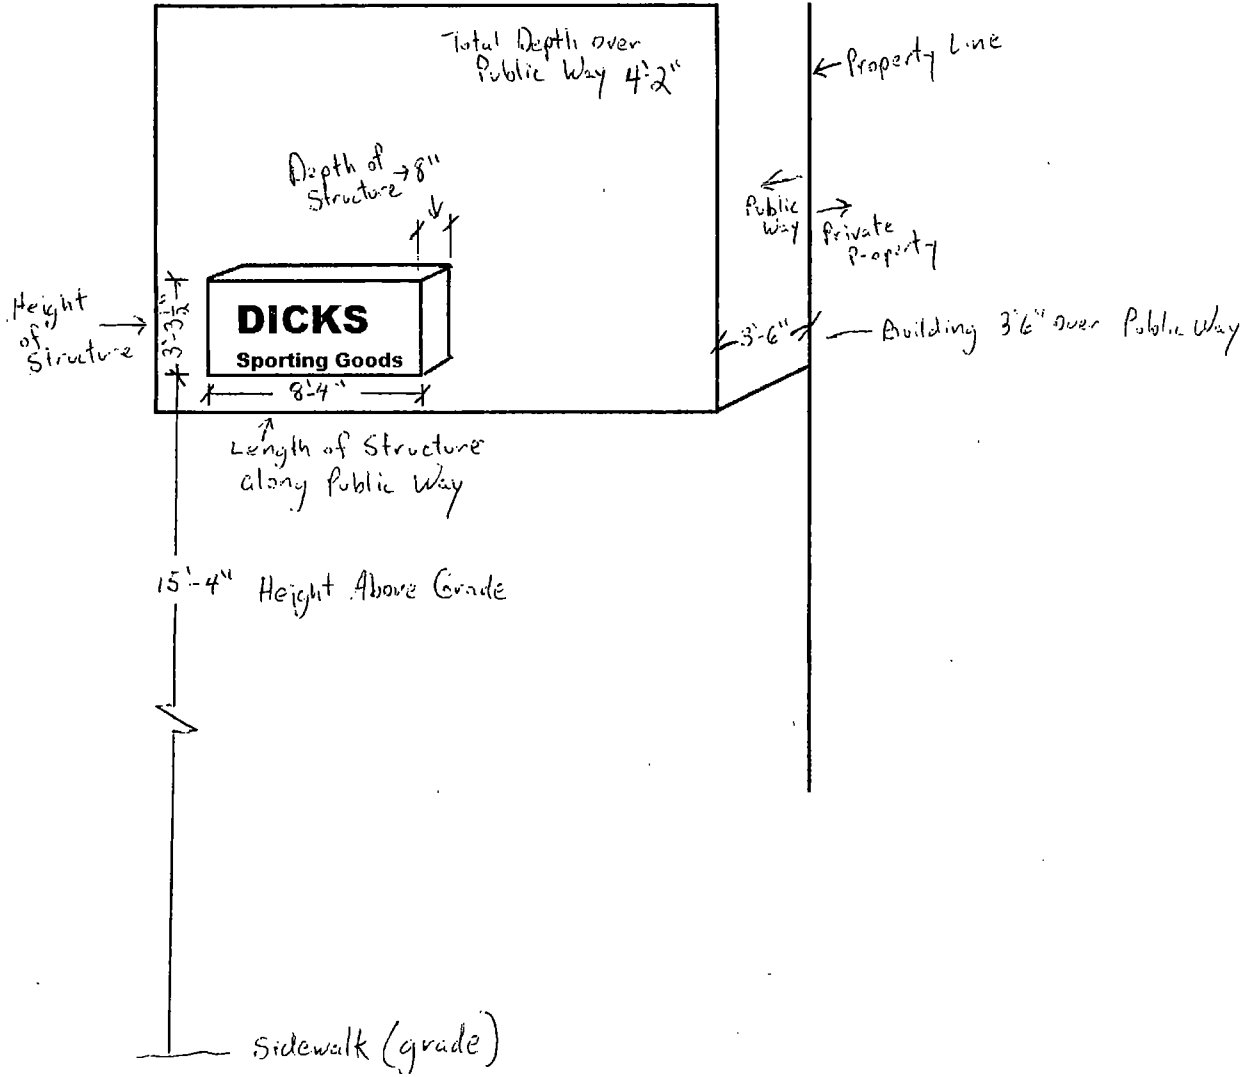 Total Depth over
Public Way 4'-2"
← Property Line
Depth of
Structure → 8"
Public
Way
Private
Property
Height
of
Structure
3'-3½"
DICKS
Sporting Goods
8'-4"
3'-6"
Building 3'6" over Public Way
Length of Structure
along Public Way
15'-4" Height Above Grade
Sidewalk (grade)